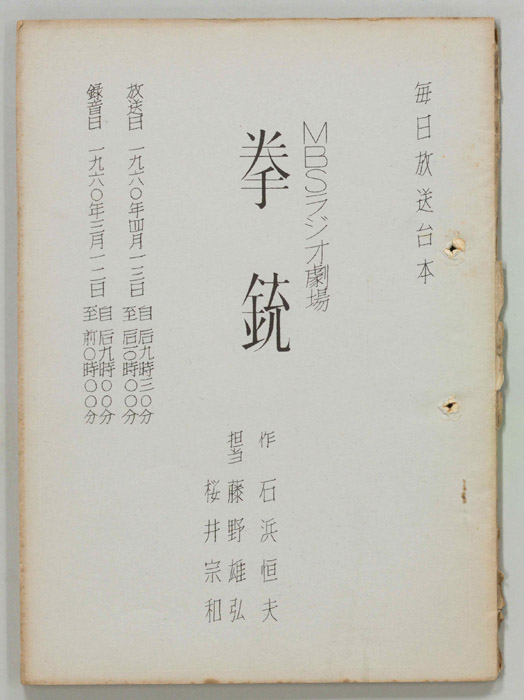 毎日放送台本
MBSラジオ劇場
拳銃
作 石浜恒夫
担当 藤野雄弘
桜井宗和
放送日 一九六〇年四月一三日 自 后九時三〇分
至 后一〇時〇〇分
録音日 一九六〇年三月一二日 自 后九時〇〇分
至 前〇時〇〇分